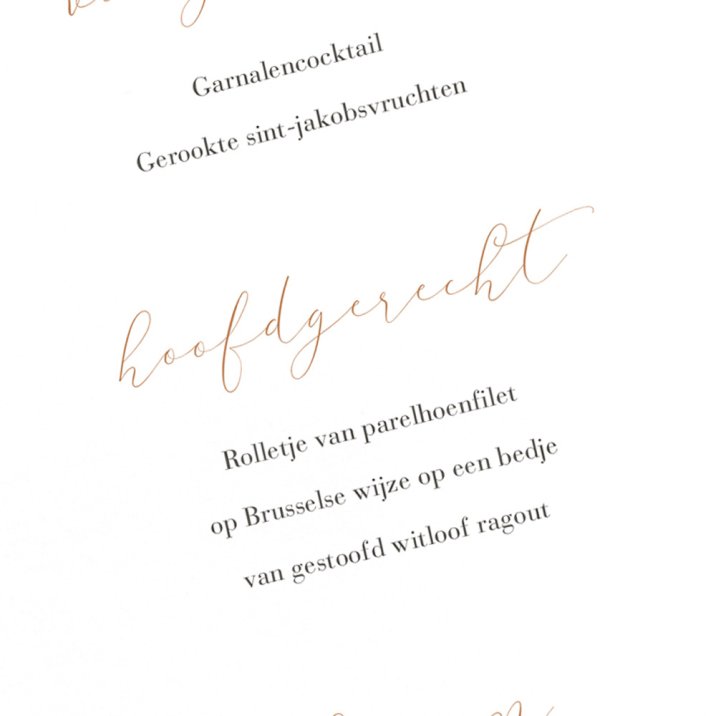 Garnalencocktail
Gerookte sint-jakobsvruchten
hoofdgerecht
Rolletje van parelhoenfilet
op Brusselse wijze op een bedje
van gestoofd witloof ragout